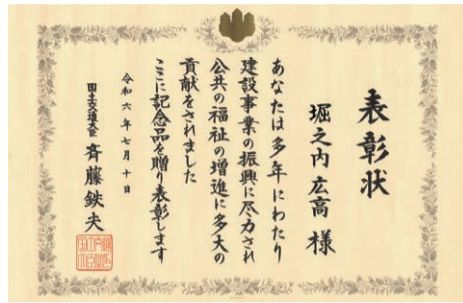 表彰状
堀之内 広高 様
あなたは多年にわたり
建設事業の振興に尽力され
公共の福祉の増進に多大の
貢献をされました
ここに記念品を贈り表彰します
令和六年七月十日
国土交通大臣 斉藤鉄夫